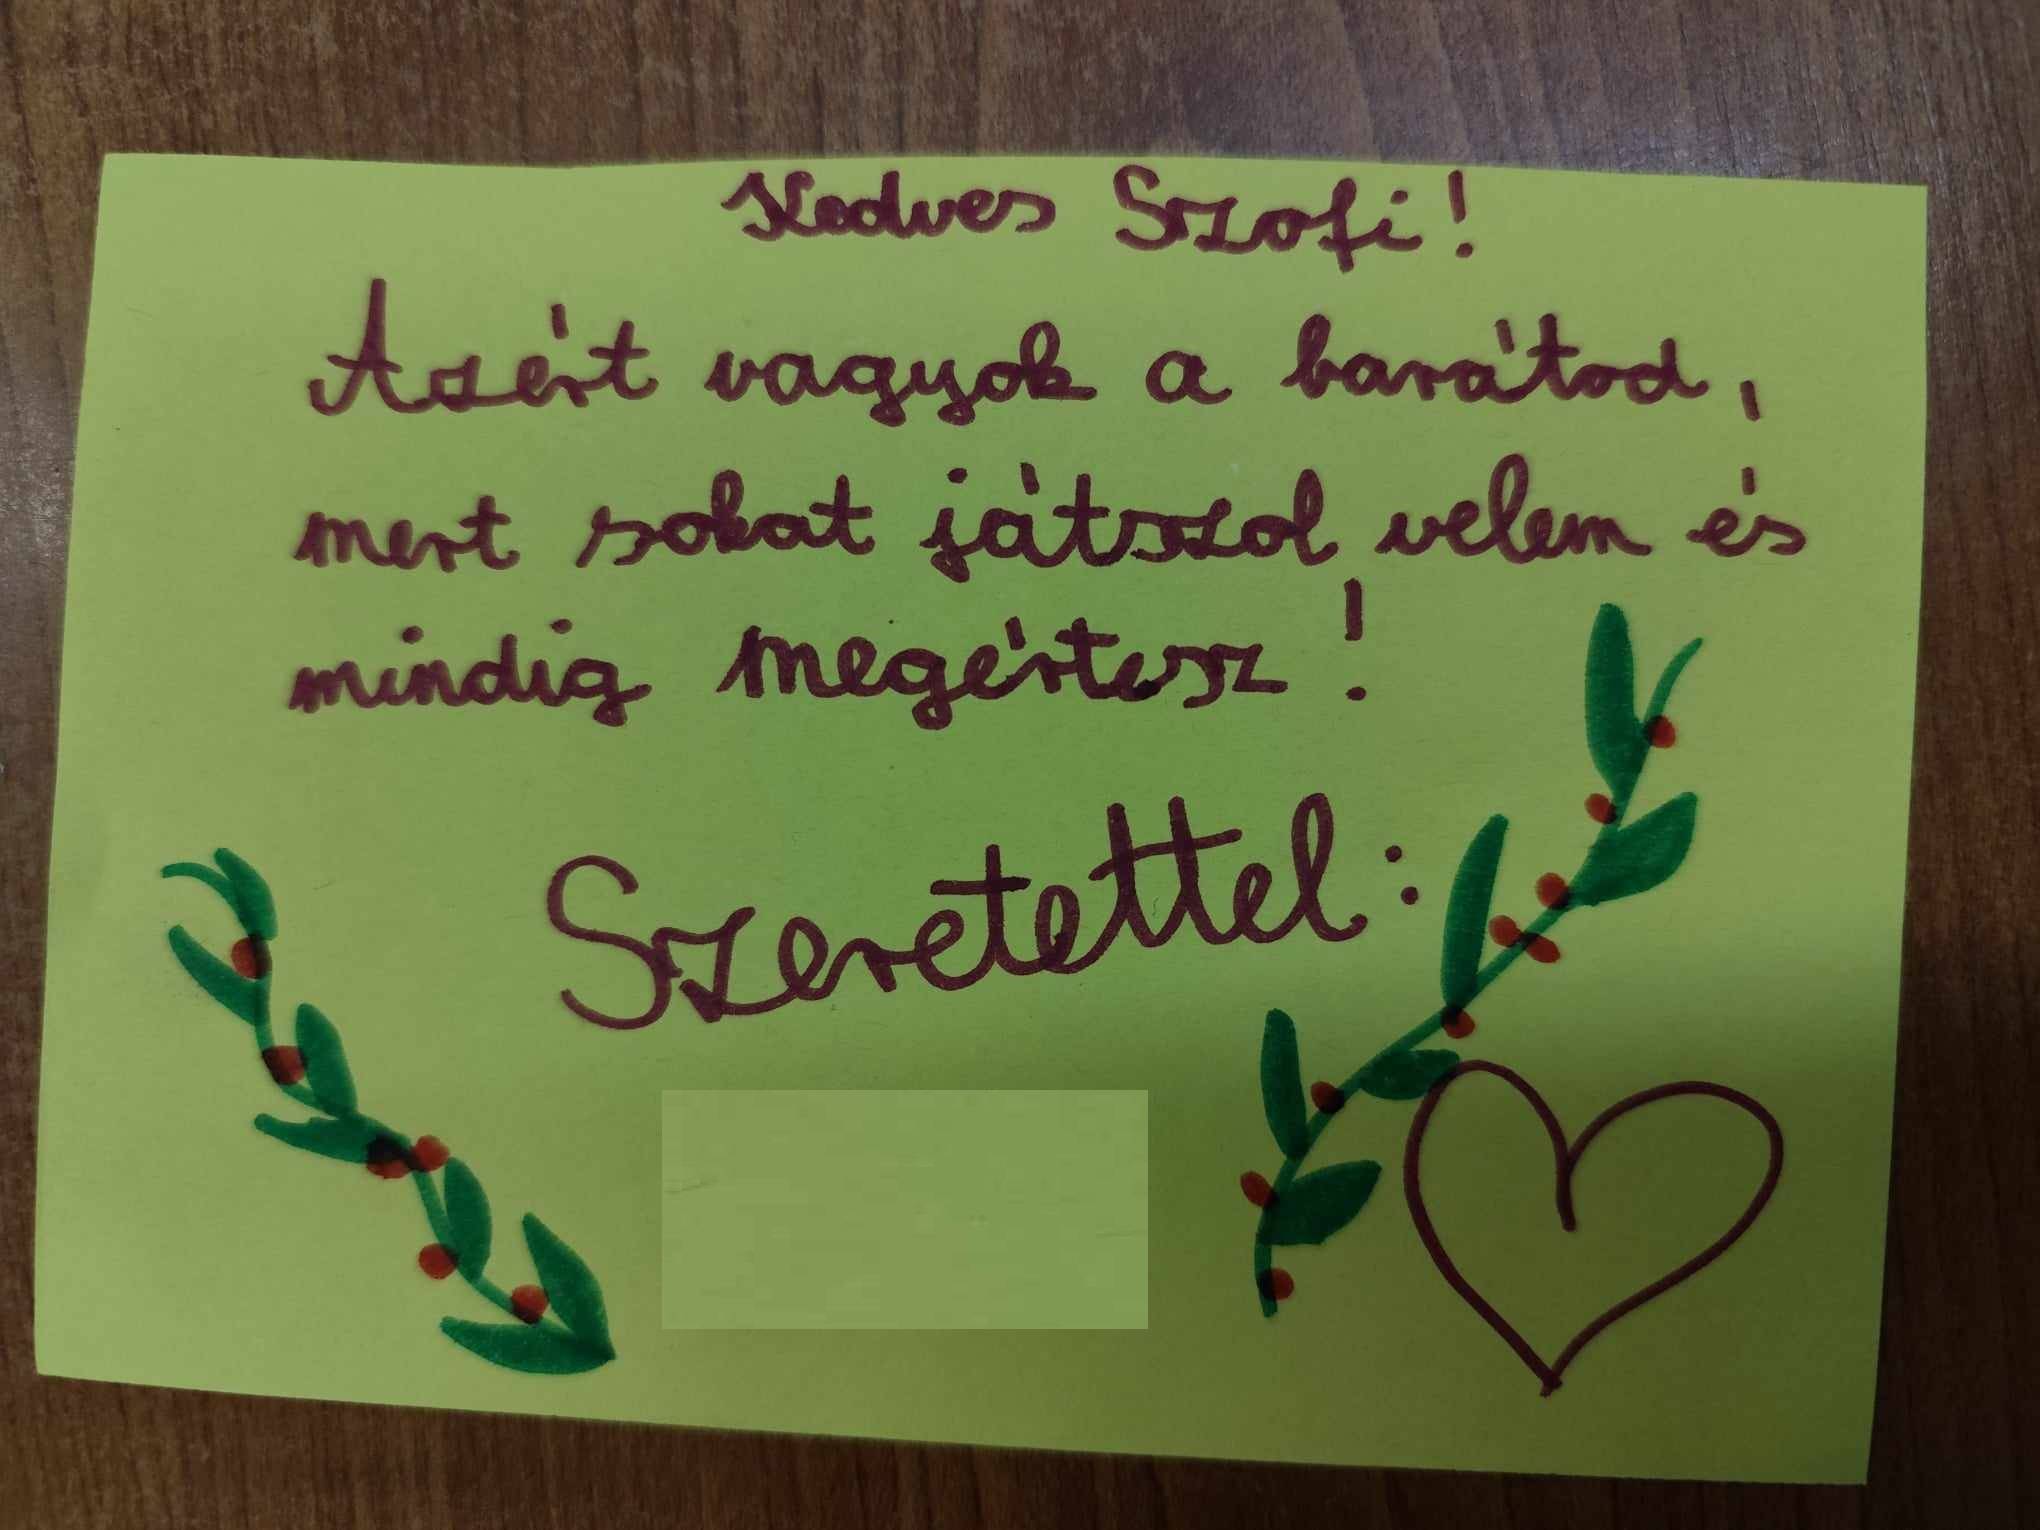 Kedves Szofi!
Azért vagyok a barátod,
mert sokat játszol velem és
mindig megértesz!
Szeretettel: